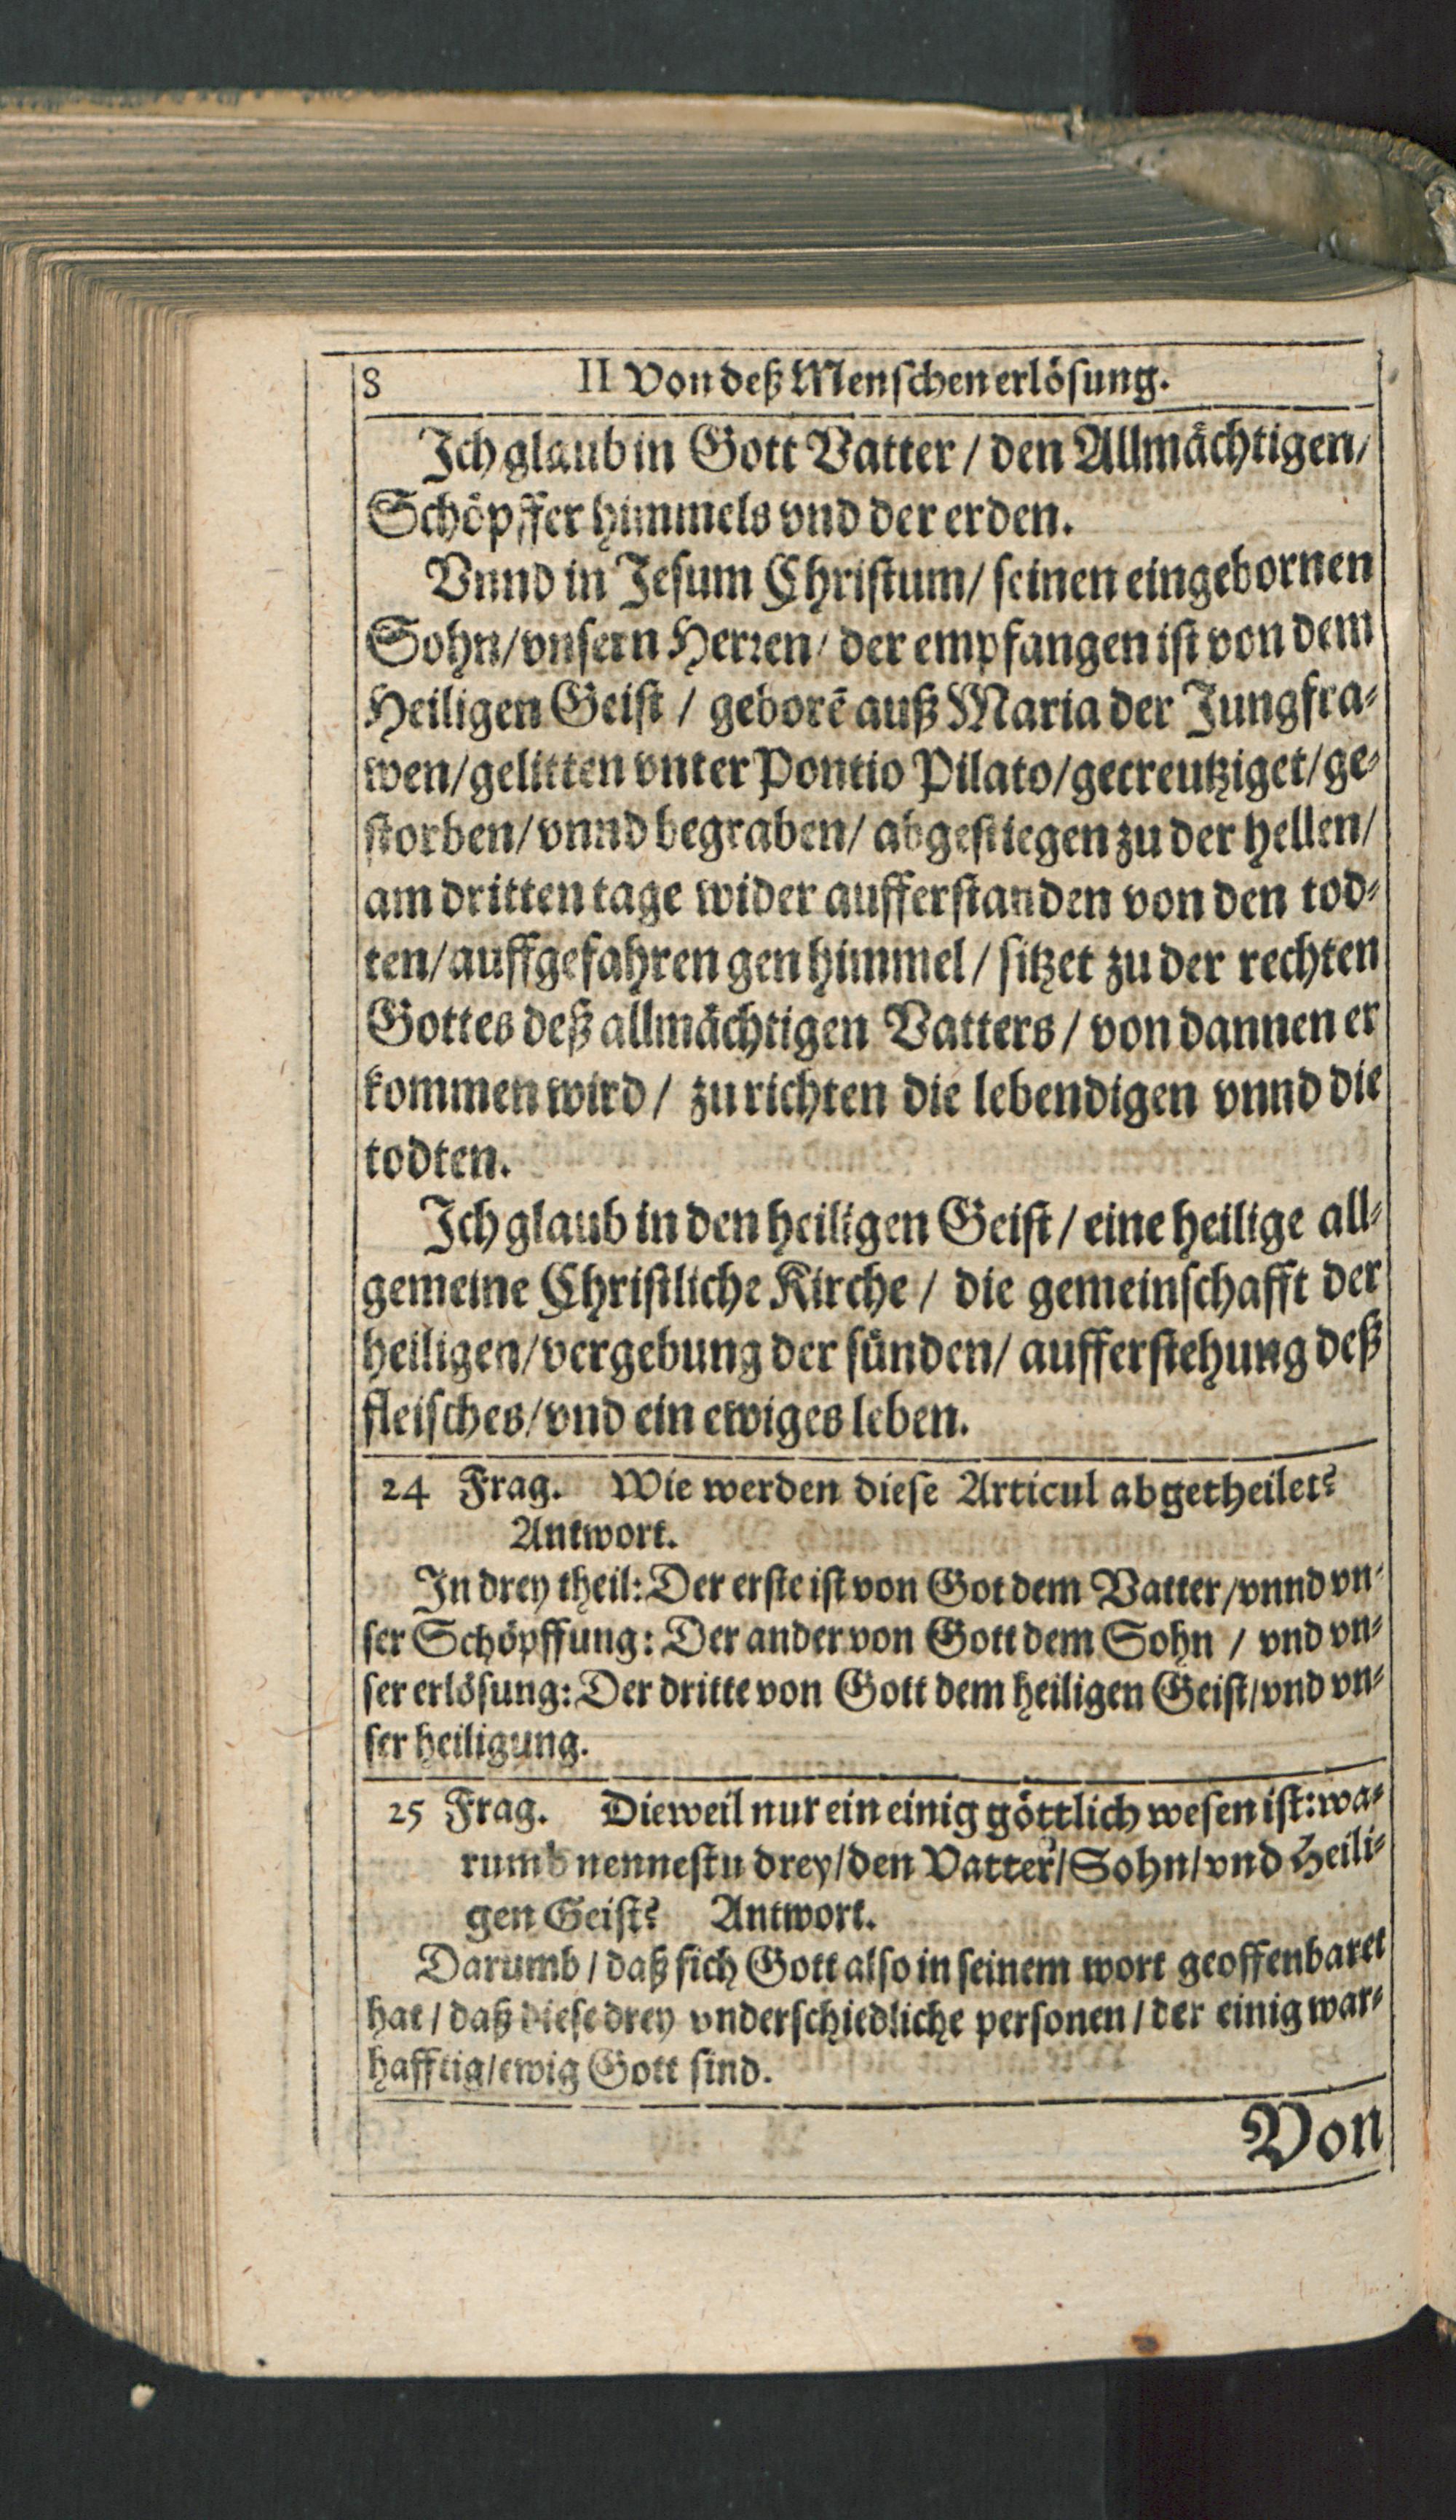 8 II Von deß Menschen erlösung.
Ich glaub in Gott Vatter / den Allmächtigen/
Schöpffer himmels vnd der erden.
Vnnd in Jesum Christum/ seinen eingebornen
Sohn/vnsern Herren/ der empfangen ist von dem
Heiligen Geist / geborẽ auß Maria der Jungfra-
wen/gelitten vnter Pontio Pilato/gecreutziget/ge-
storben/vnnd begraben/ abgestiegen zu der hellen/
am dritten tage wider aufferstanden von den tod-
ten/auffgefahren gen himmel / sitzet zu der rechten
Gottes deß allmächtigen Vatters / von dannen er
kommen wird / zu richten die lebendigen vnnd die
todten.
Ich glaub in den heiligen Geist / eine heilige all-
gemeine Christliche Kirche / die gemeinschafft der
heiligen/vergebung der sünden/ aufferstehung deß
fleisches/vnd ein ewiges leben.
24 Frag. Wie werden diese Articul abgetheilet?
Antwort.
In drey theil: Der erste ist von Got dem Vatter/vnnd vn-
ser Schöpffung: Der ander von Gott dem Sohn / vnd vn-
ser erlösung: Der dritte von Gott dem heiligen Geist/vnd vn-
ser heiligung.
25 Frag. Dieweil nur ein einig göttlich wesen ist: wa-
rumb nennestu drey/den Vatter/Sohn/vnd Heili-
gen Geist? Antwort.
Darumb / daß sich Gott also in seinem wort geoffenbaret
hat / daß diese drey vnderschiedliche personen / der einig war-
hafftig/ewig Gott sind.
Von